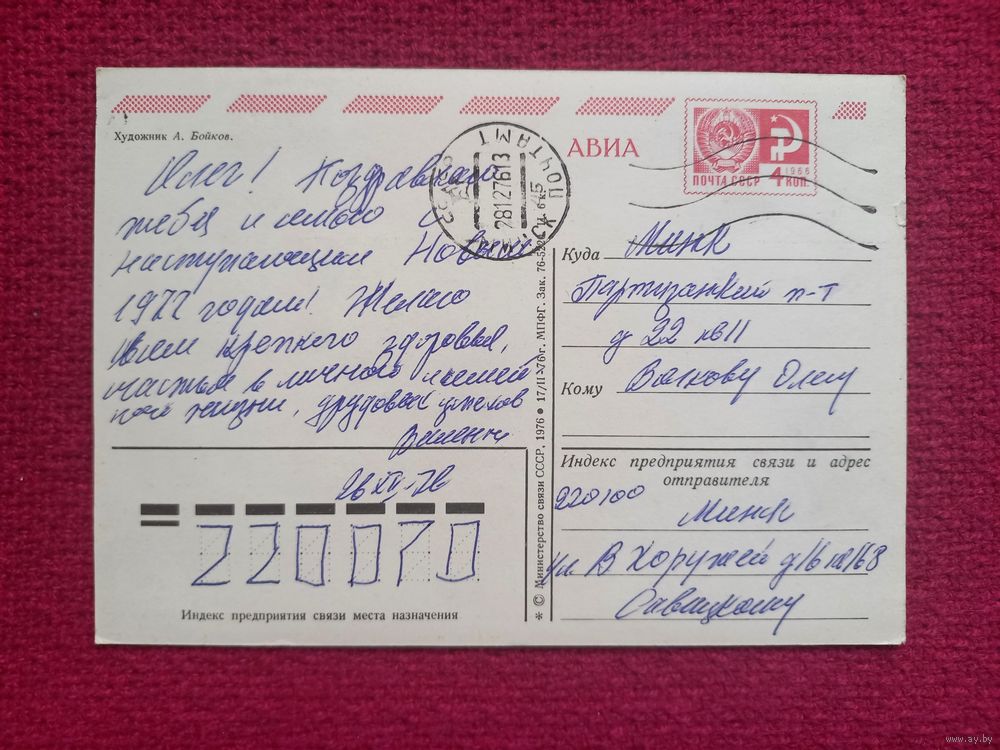 Художник А. Бойков.
АВИА
ПОЧТА СССР
1966
4 КОП.
ПОЧТАМТ
28127613
Олег! Поздравляю
тебя и семью с
наступающим Новым
1977 годом! Желаю
Всем крепкого здоровья,
счастья в личной и
жизни, трудовых успехов
26 XII-76
220070
Индекс предприятия связи места назначения
* © Министерство связи СССР, 1976 ● 17/II-76 г. МПФГ. Зак. 76-522
Куда Минск
Партизанский п-т
д 22 кв 11
Кому Волкову Олегу
Индекс предприятия связи и адрес
отправителя
220100
Минск
ул. В Хоружей д 16 кв 168
Савицкому
www.ay.by